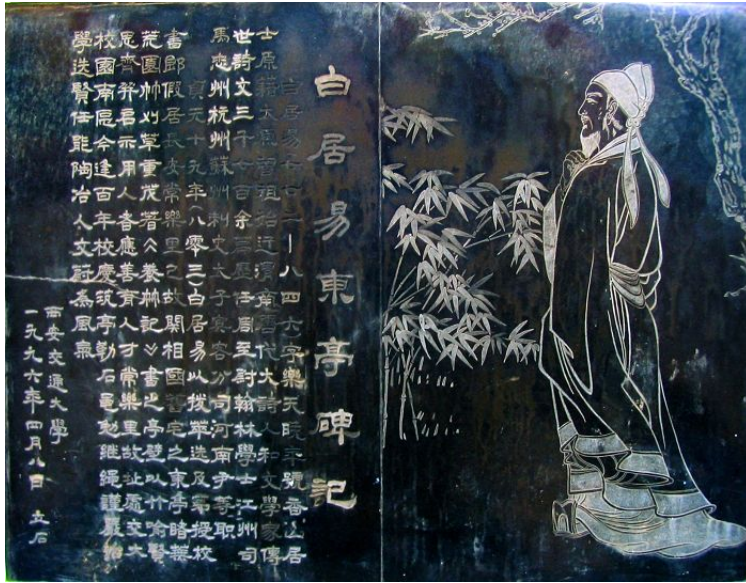 白居易東亭碑記
白居易七七二—八四六字樂天晚年號香山居
士原籍太原曾祖始迁渭南唐代大詩人和文學家傳
世詩文三千七百余歷任周至尉翰林學士江州司
馬忠州杭州蘇州刺史太子賓客分司河南尹等職
貞元十九年八零三白居易以拔萃选及第授校
書郎假居長安常樂里之故關相國舊宅之東亭睹叢
荒園竹刈草重茂著《養竹記》書之亭壁以竹喻賢
思齊并君示用人者應善育人才常樂里故址處交大
校園南隅今逢百年校慶筑亭勒石是勉继绳謹嚴治
學迭賢任能陶冶人文蔚為風氣
西安交通大學
一九九六年四月八日 立石